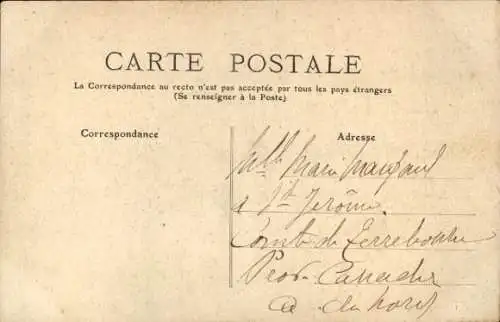 CARTE POSTALE
La Correspondance au recto n'est pas acceptée par tous les pays étrangers
(Se renseigner à la Poste)
Correspondance
Adresse
Mlle Marie
à St Jérôme.
Comté de Terrebonne
Canada
du nord